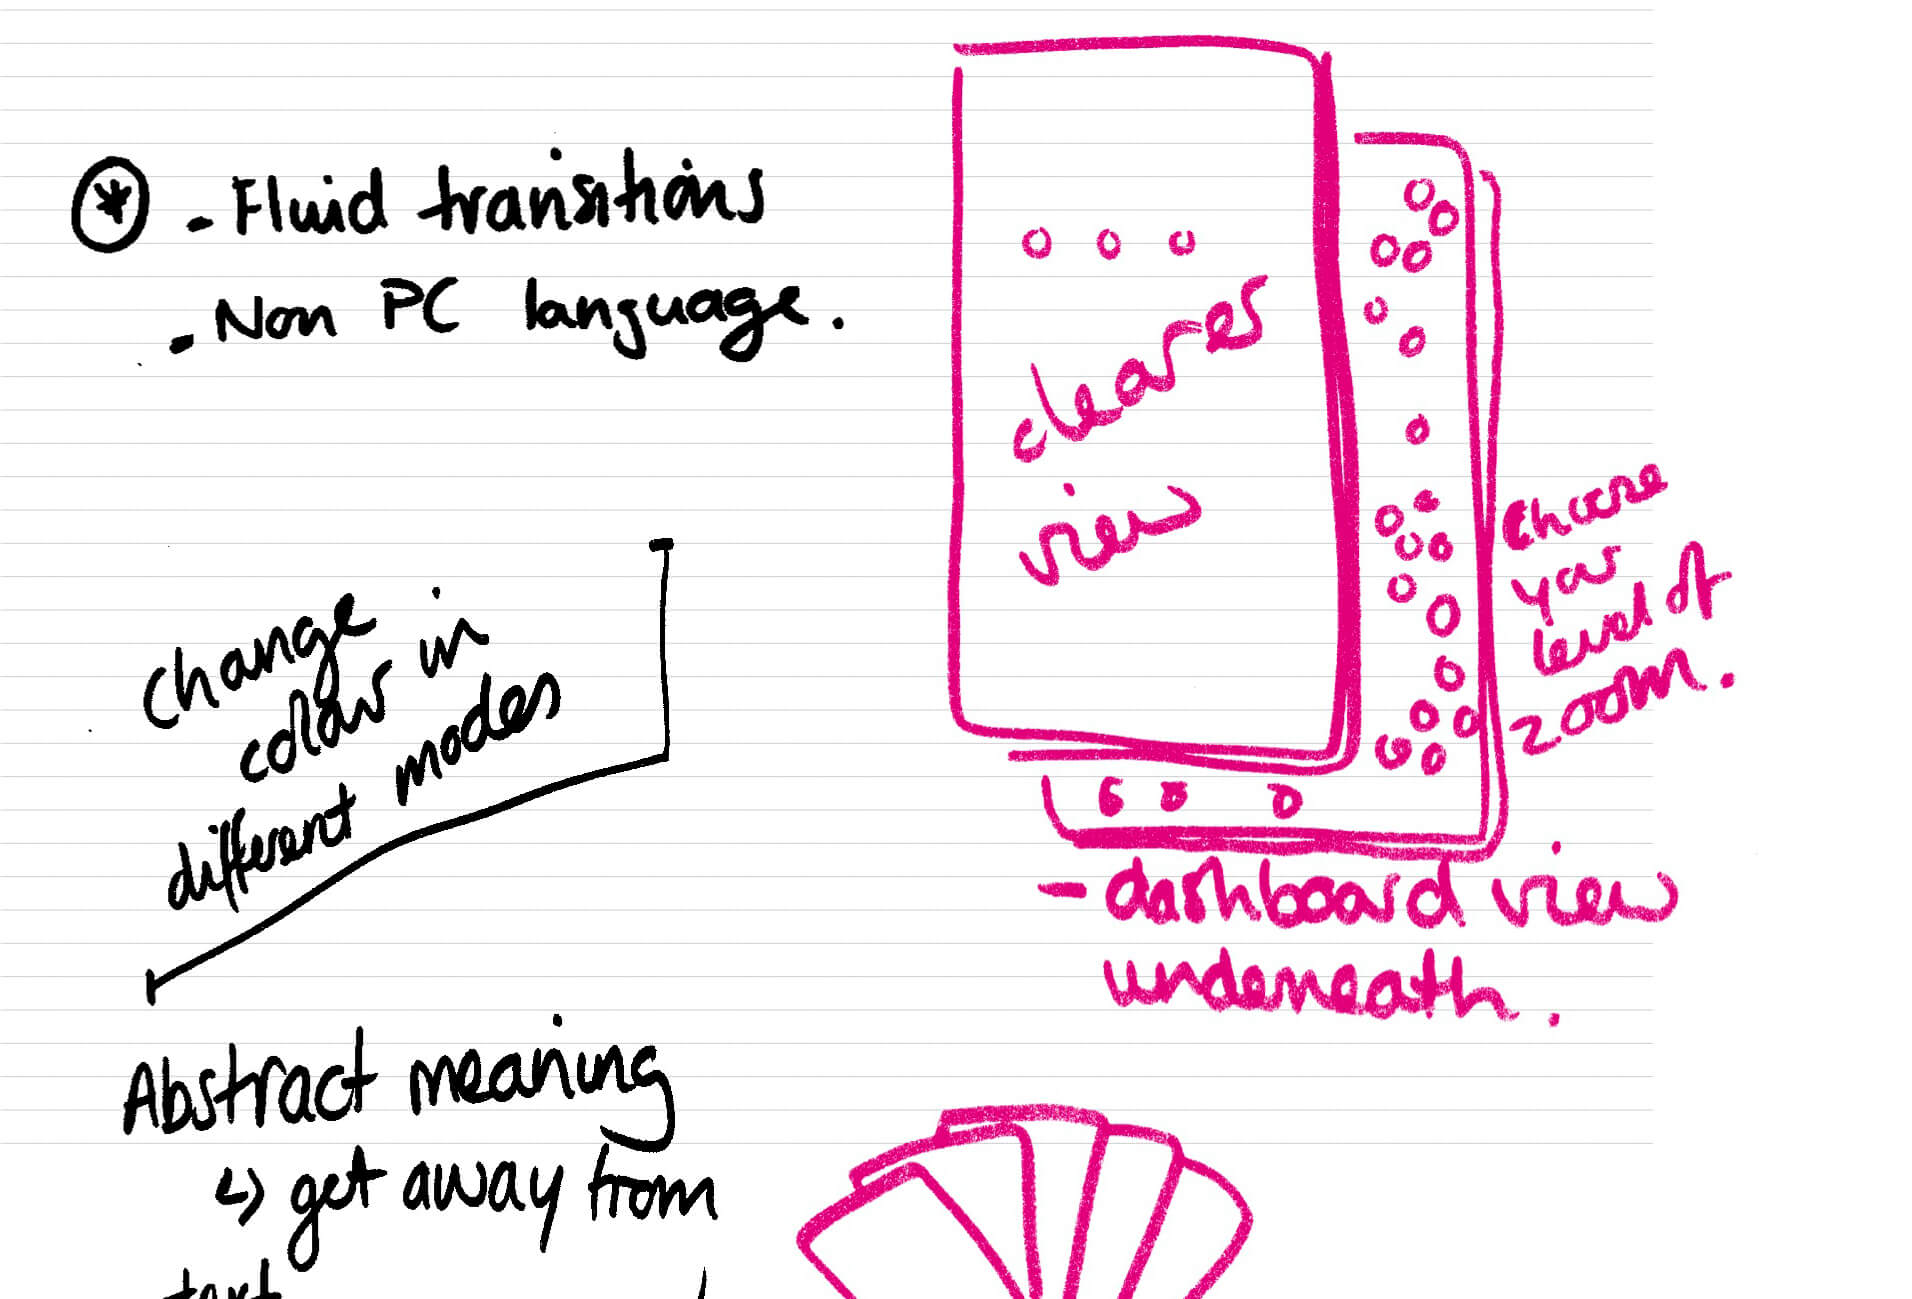 - Fluid transitions
- Non PC language.
change
colour in
different modes
Abstract meaning
↳ get away from
text
clearer
view
Choose
your
level of
zoom.
- dashboard view
underneath.